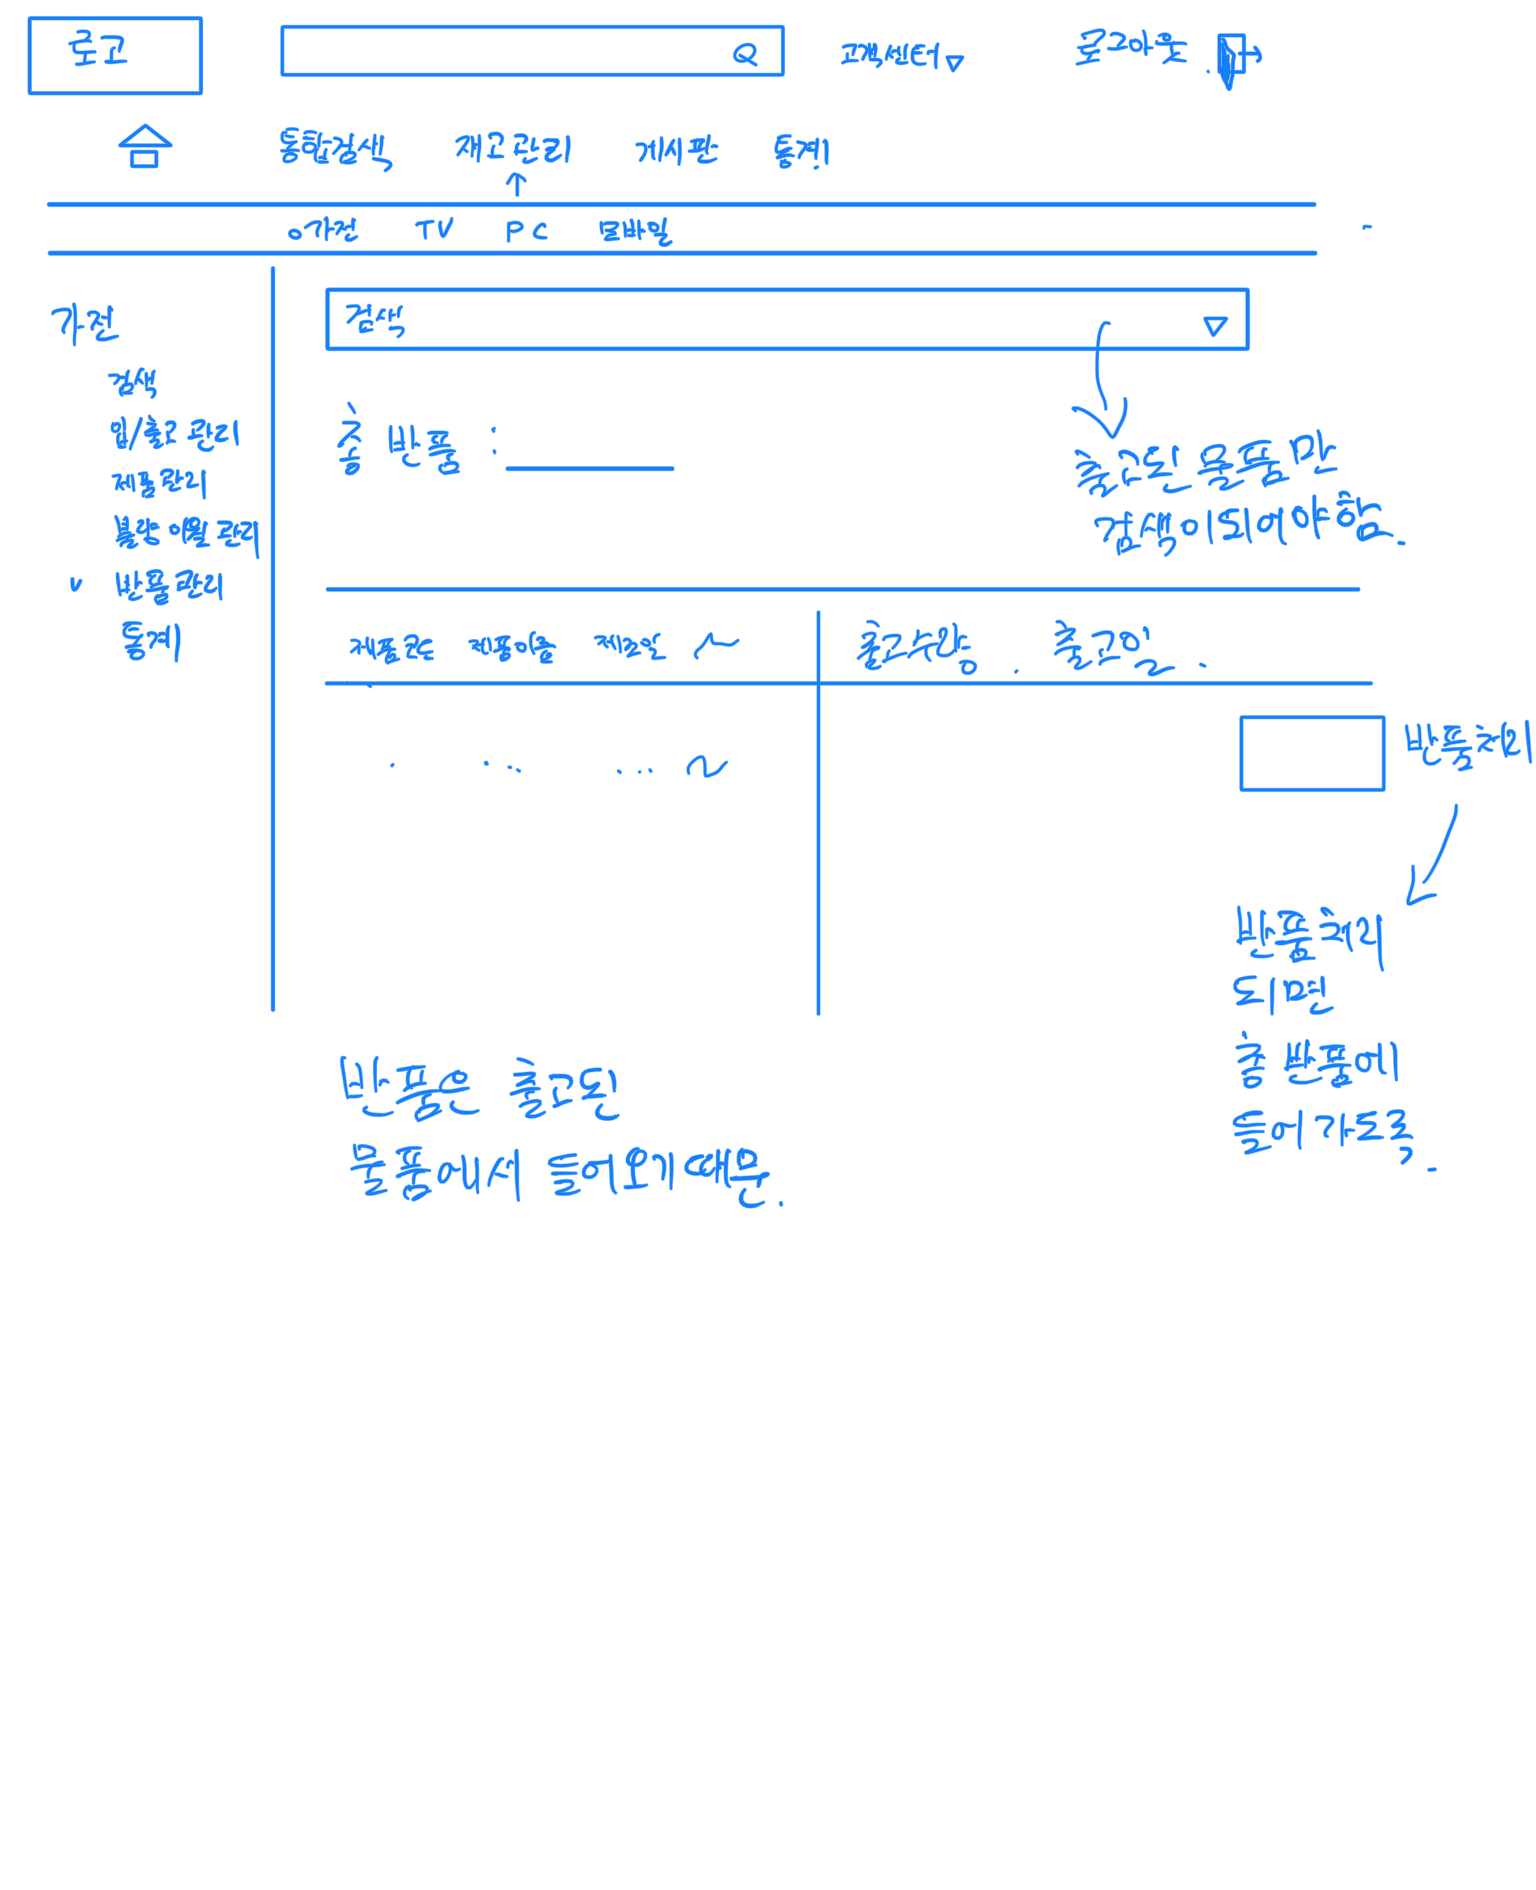 로고
고객센터
로그아웃
통합검색 재고관리 게시판 통계
가전 TV PC 모바일
가전
검색
입/출고 관리
제품 관리
불량 이월 관리
반품 관리
통계
검색
총 반품 :
출고된 물품만
검색이 되어야함.
제품코드 제품이름 제조일 ~ 출고수량 . 출고일 .
반품처리
반품처리
되면
총 반품에
들어가도록.
반품은 출고된
물품에서 들어오기 때문.